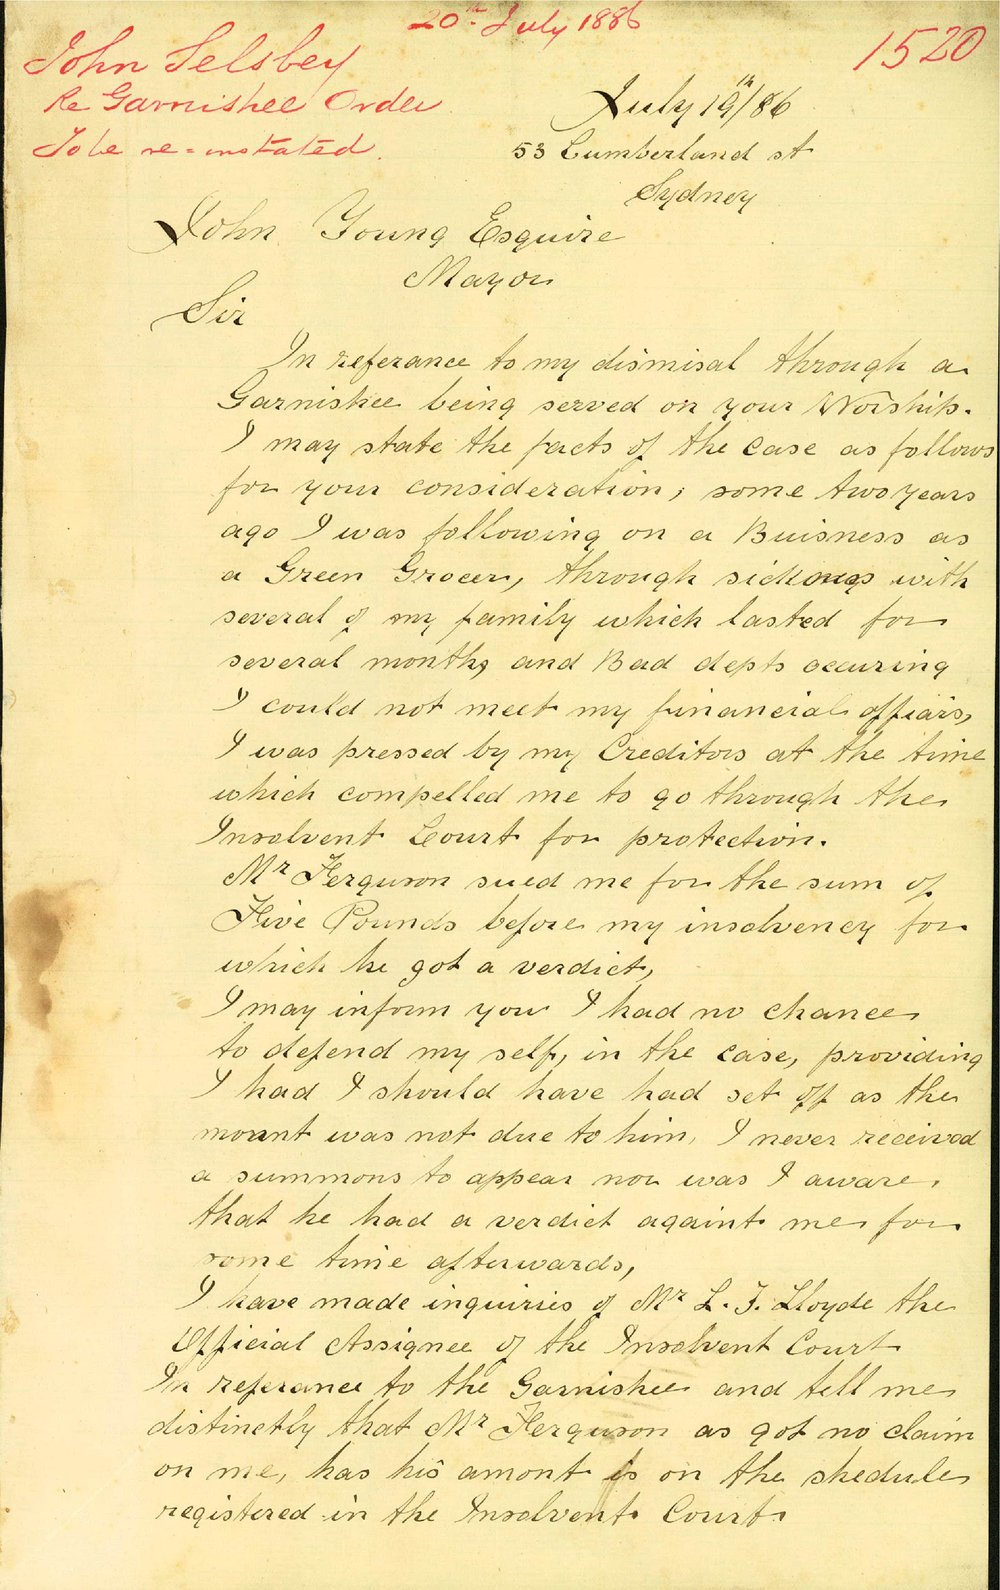 20th July 1886
1520
John Selsbey
Re Garnishee Order
To be re=instated.
July 19th/86
53 Cumberland st
Sydney
John Young Esquire
Mayor
Sir
In referance to my dismisal through a
Garnishee being served on your Worship.
I may state the facts of the case as follows
for your consideration; some two years
ago I was following on a Buisness as
a Green Grocer, through sickness with
several of my family which lasted for
several months, and Bad depts occuring
I could not meet my financial affiars,
I was pressed by my Creditors at the time
which compelled me to go through the
Insolvent Court for protection.
Mr Ferguson sued me for the sum of
Five Pounds before my insolvency for
which he got a verdict,
I may inform you I had no chance
to defend my self, in the case, providing
I had I should have had set off as the
mount was not due to him, I never received
a summons to appear nor was I aware
that he had a verdict againt me for
some time afterwards,
I have made inquiries of Mr L. T. Lloyde the
Official Assignee of the Insolvent Court
In referance to the Garnishee and tell me
distinctly that Mr Ferguson as got no claim
on me, has his amont is on the shedule
registered in the Insolvent Court.